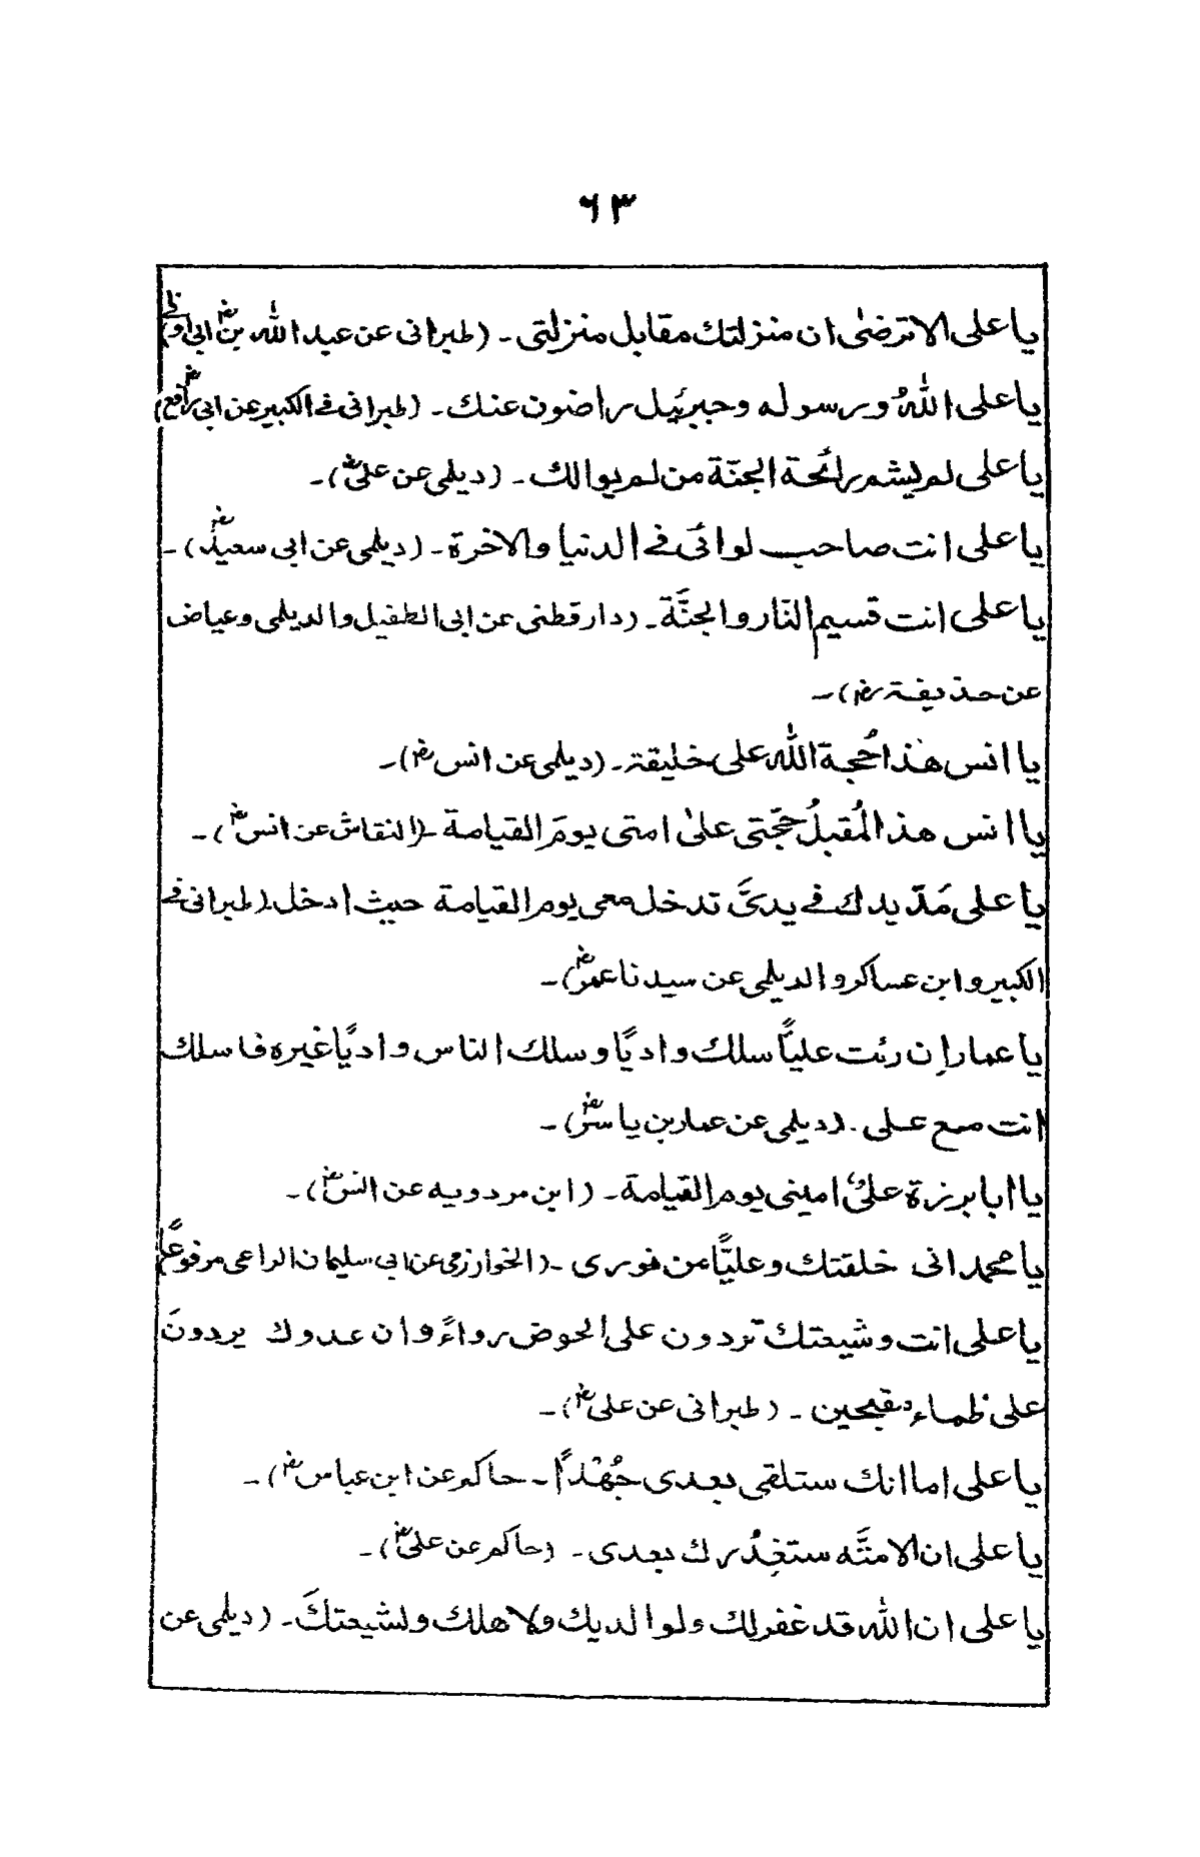 ٦٣
یا علی الا ترضیٰ ان منزلتك مقابل منزلتی ۔ (طبرانی عن عبد اللہ بنؓ ابی اوفی)
یا علی اللّٰهُ ورسوله وجبرئیل راضون عنك ۔ (طبرانی فے الکبیر عن ابی رافعؓ)
یا علی لم یشم رائحة الجنّة من لم یوالك ۔ (دیلمی عن علیؓ) ۔
یا علی انت صاحب لوائی فے الدنیا والاخرة ۔ (دیلمی عن ابی سعیدؓ) ۔
یا علی انت قسیم النّار والجنَّة ۔ (دار قطنی عن ابی الطفیل والدیلمی وعیاض
عن حذیفة رضؓ) ۔
یا انس هٰذا حُجة اللّٰه علی خلیقة ۔ (دیلمی عن انس رضؓ) ۔
یا انس هذ المُقبلُ حجّتی علیٰ امتی یومَ القیامة ۔ (النقاش عن انسؓ) ۔
یا علی مَدّ یدك فے یدیَّ تدخل معی یوم القیامة حیث ادخل ۔ (طبرانی فے
الکبیر وابن عساکر والدیلمی عن سیدنا عمرؓ) ۔
یا عمار اِن رئت علیاًّ سلك وادیًا وسلك الناس وادیًا غیره فاسلك
انت مع علی ۔ (دیلمی عن عمار بن یاسرؓ) ۔
یا ابا برزة علیٌ امینی یوم القیامة ۔ (ابن مردویه عن انسؓ) ۔
یا محمد انی خلقتك وعلیًّا من نوری ۔ (الخوارزمی عن ابی سلیمان الراعی مرفوعًا)
یا علی انت وشیعتك تردون علی الحوض رواءً وان عدوك یردونَ
علی ظماء مقبحین ۔ (طبرانی عن علیؓ) ۔
یا علی اما انك ستلقی بعدی جُهْدًا ۔ حاکم عن ابن عباسؓ) ۔
یا علی ان الامتَّه ستغدُرك بعدی ۔ (حاکم عن علیؓ) ۔
یا علی ان اللّٰه قد غفرلك ولوالدیك ولاهلك ولشیعتكَ ۔ (دیلمی عن